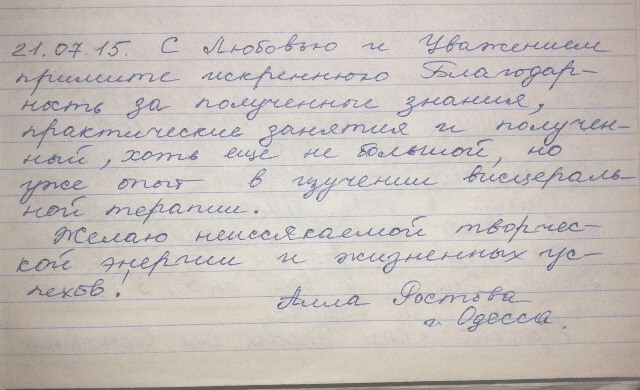 21.07.15. С Любовью и Уважением
примите искреннюю Благодар-
ность за полученные знания,
практические занятия и получен-
ный, хоть еще не большой, но
уже опыт в изучении висцераль-
ной терапии.
Желаю неиссякаемой творчес-
кой энергии и жизненных ус-
пехов!
Алла Ростова
г. Одесса.